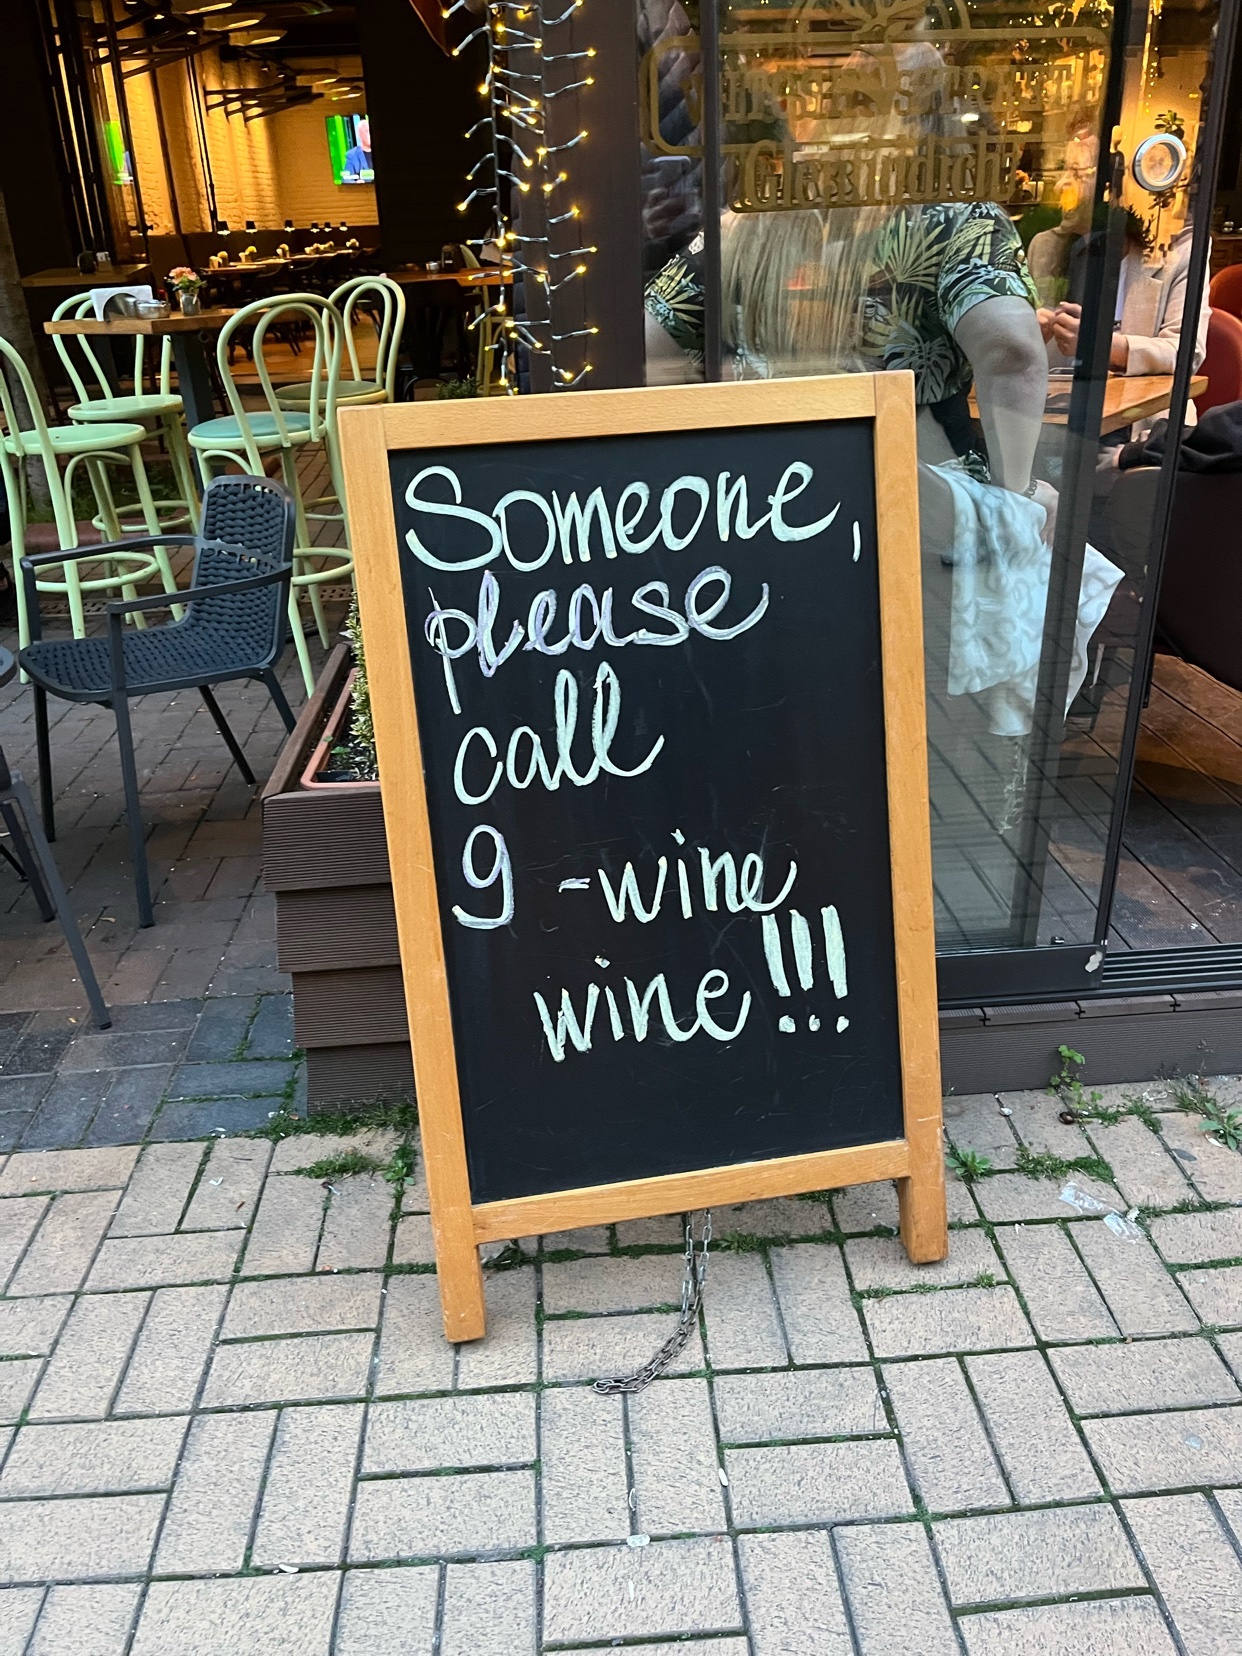 Someone,
please
call
9 -wine
wine!!!